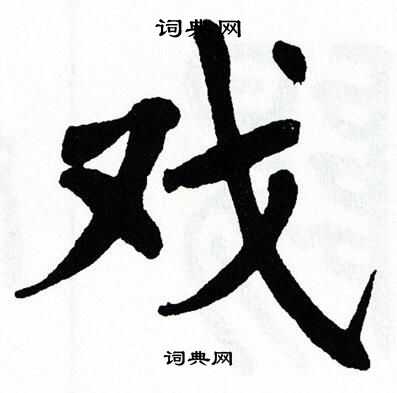 词典网
戏
词典网